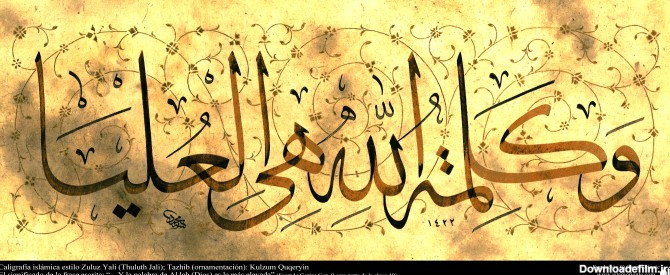 وَكَلِمَةُ اللّٰهِ هِيَ الْعُلْيَا
١٤٢٢
Caligrafía islámica estilo Zuluz Yali (Thuluth Jali); Tazhib (ornamentación): Kulzum Quqeryin
El significado de la frase escrita: “... Y la palabra de Al-lah (Dios) es la más elevada”
Downloadefilm.